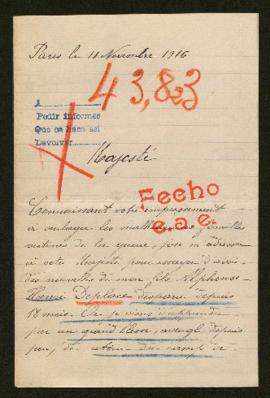 Paris le 11 Novembre 1916
43,823
A
Pedir informes
Que se hace así
Devolver
Majesté
Fecho
e.a.e.
Connaissant votre empressement
à soulager les malheureuses familles
victimes de la guerre, j'ose m'adresser
à votre Majesté pour essayer d'avoir
des nouvelles de mon fils Alphonse
Deplace disparu depuis
18 mois. Or je viens d'apprendre
par un grand blessé, aveugle depuis
peu, de